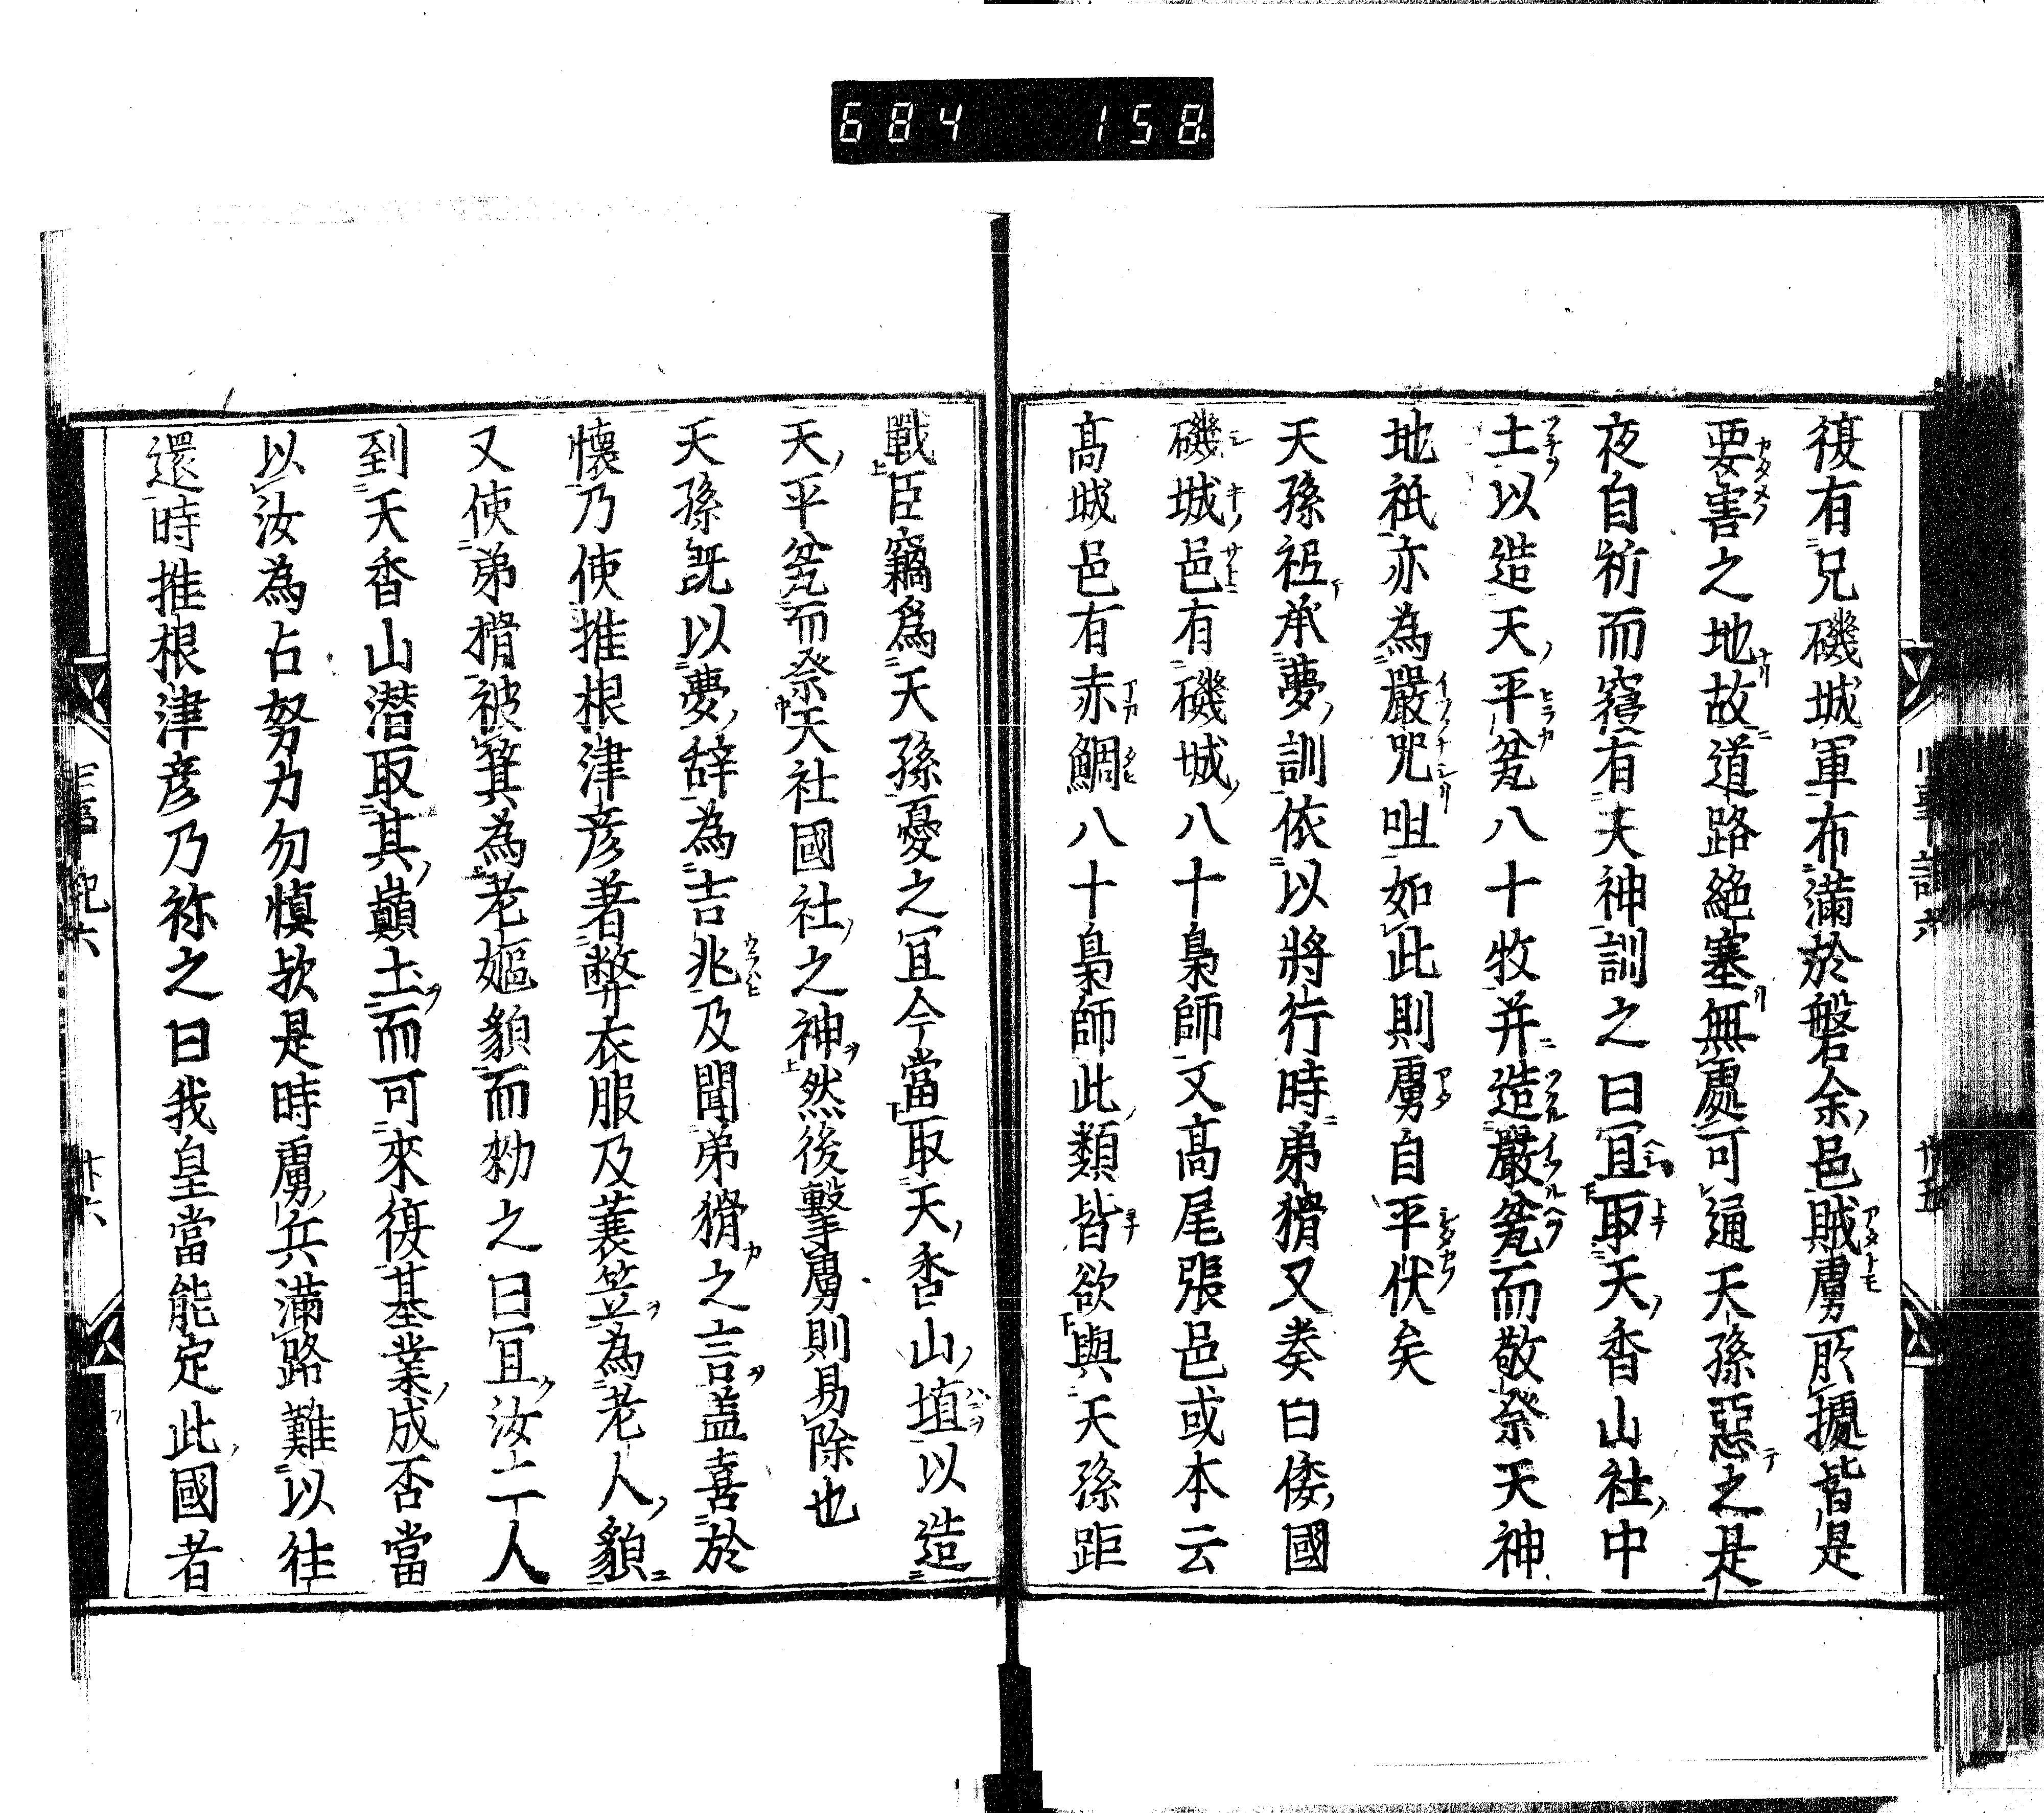 684 158
復有兄磯城軍布滿於磐余邑賊虜所據皆是
要害之地故道路絕塞無處可通天孫惡之是
夜自祈而寢有天神訓之曰冝取天香山社中
土以造天平瓫八十枚并造嚴瓫而敬祭天神
地祇亦為嚴咒咀如此則虜自平伏矣
天孫祗承夢訓依以將行時弟猾又奏曰倭國
磯城邑有磯城八十梟師又高尾張邑或本云
髙城邑有赤鯛八十梟師此類皆欲與天孫距
戰臣竊爲天孫憂之冝今當取天香山埴以造
天平瓫而祭天社國社之神然後擊虜則易除也
天孫既以夢辞為吉兆及聞弟猾之言盖喜於
懐乃使推根津彦著弊衣服及蓑笠為老人貌
又使弟猾被箕為老嫗貌而勑之曰冝汝二人
到天香山潜取其巓土而可來復基業成否當
以汝為占努力勿慎欤是時虜兵滿路難以往
還時推根津彦乃祢之曰我皇當能定此國者